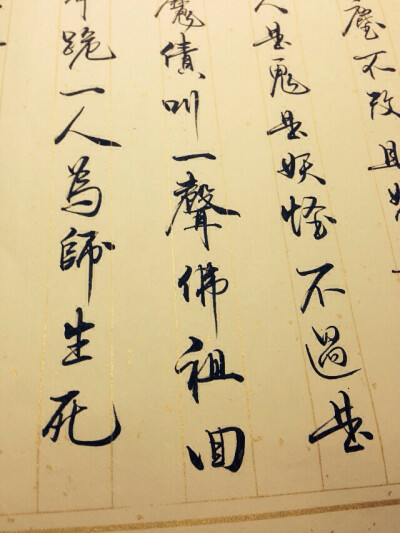 塵不改且
人是鬼是妖怪不過是
魔債叫一聲佛祖回
跪一人為師生死